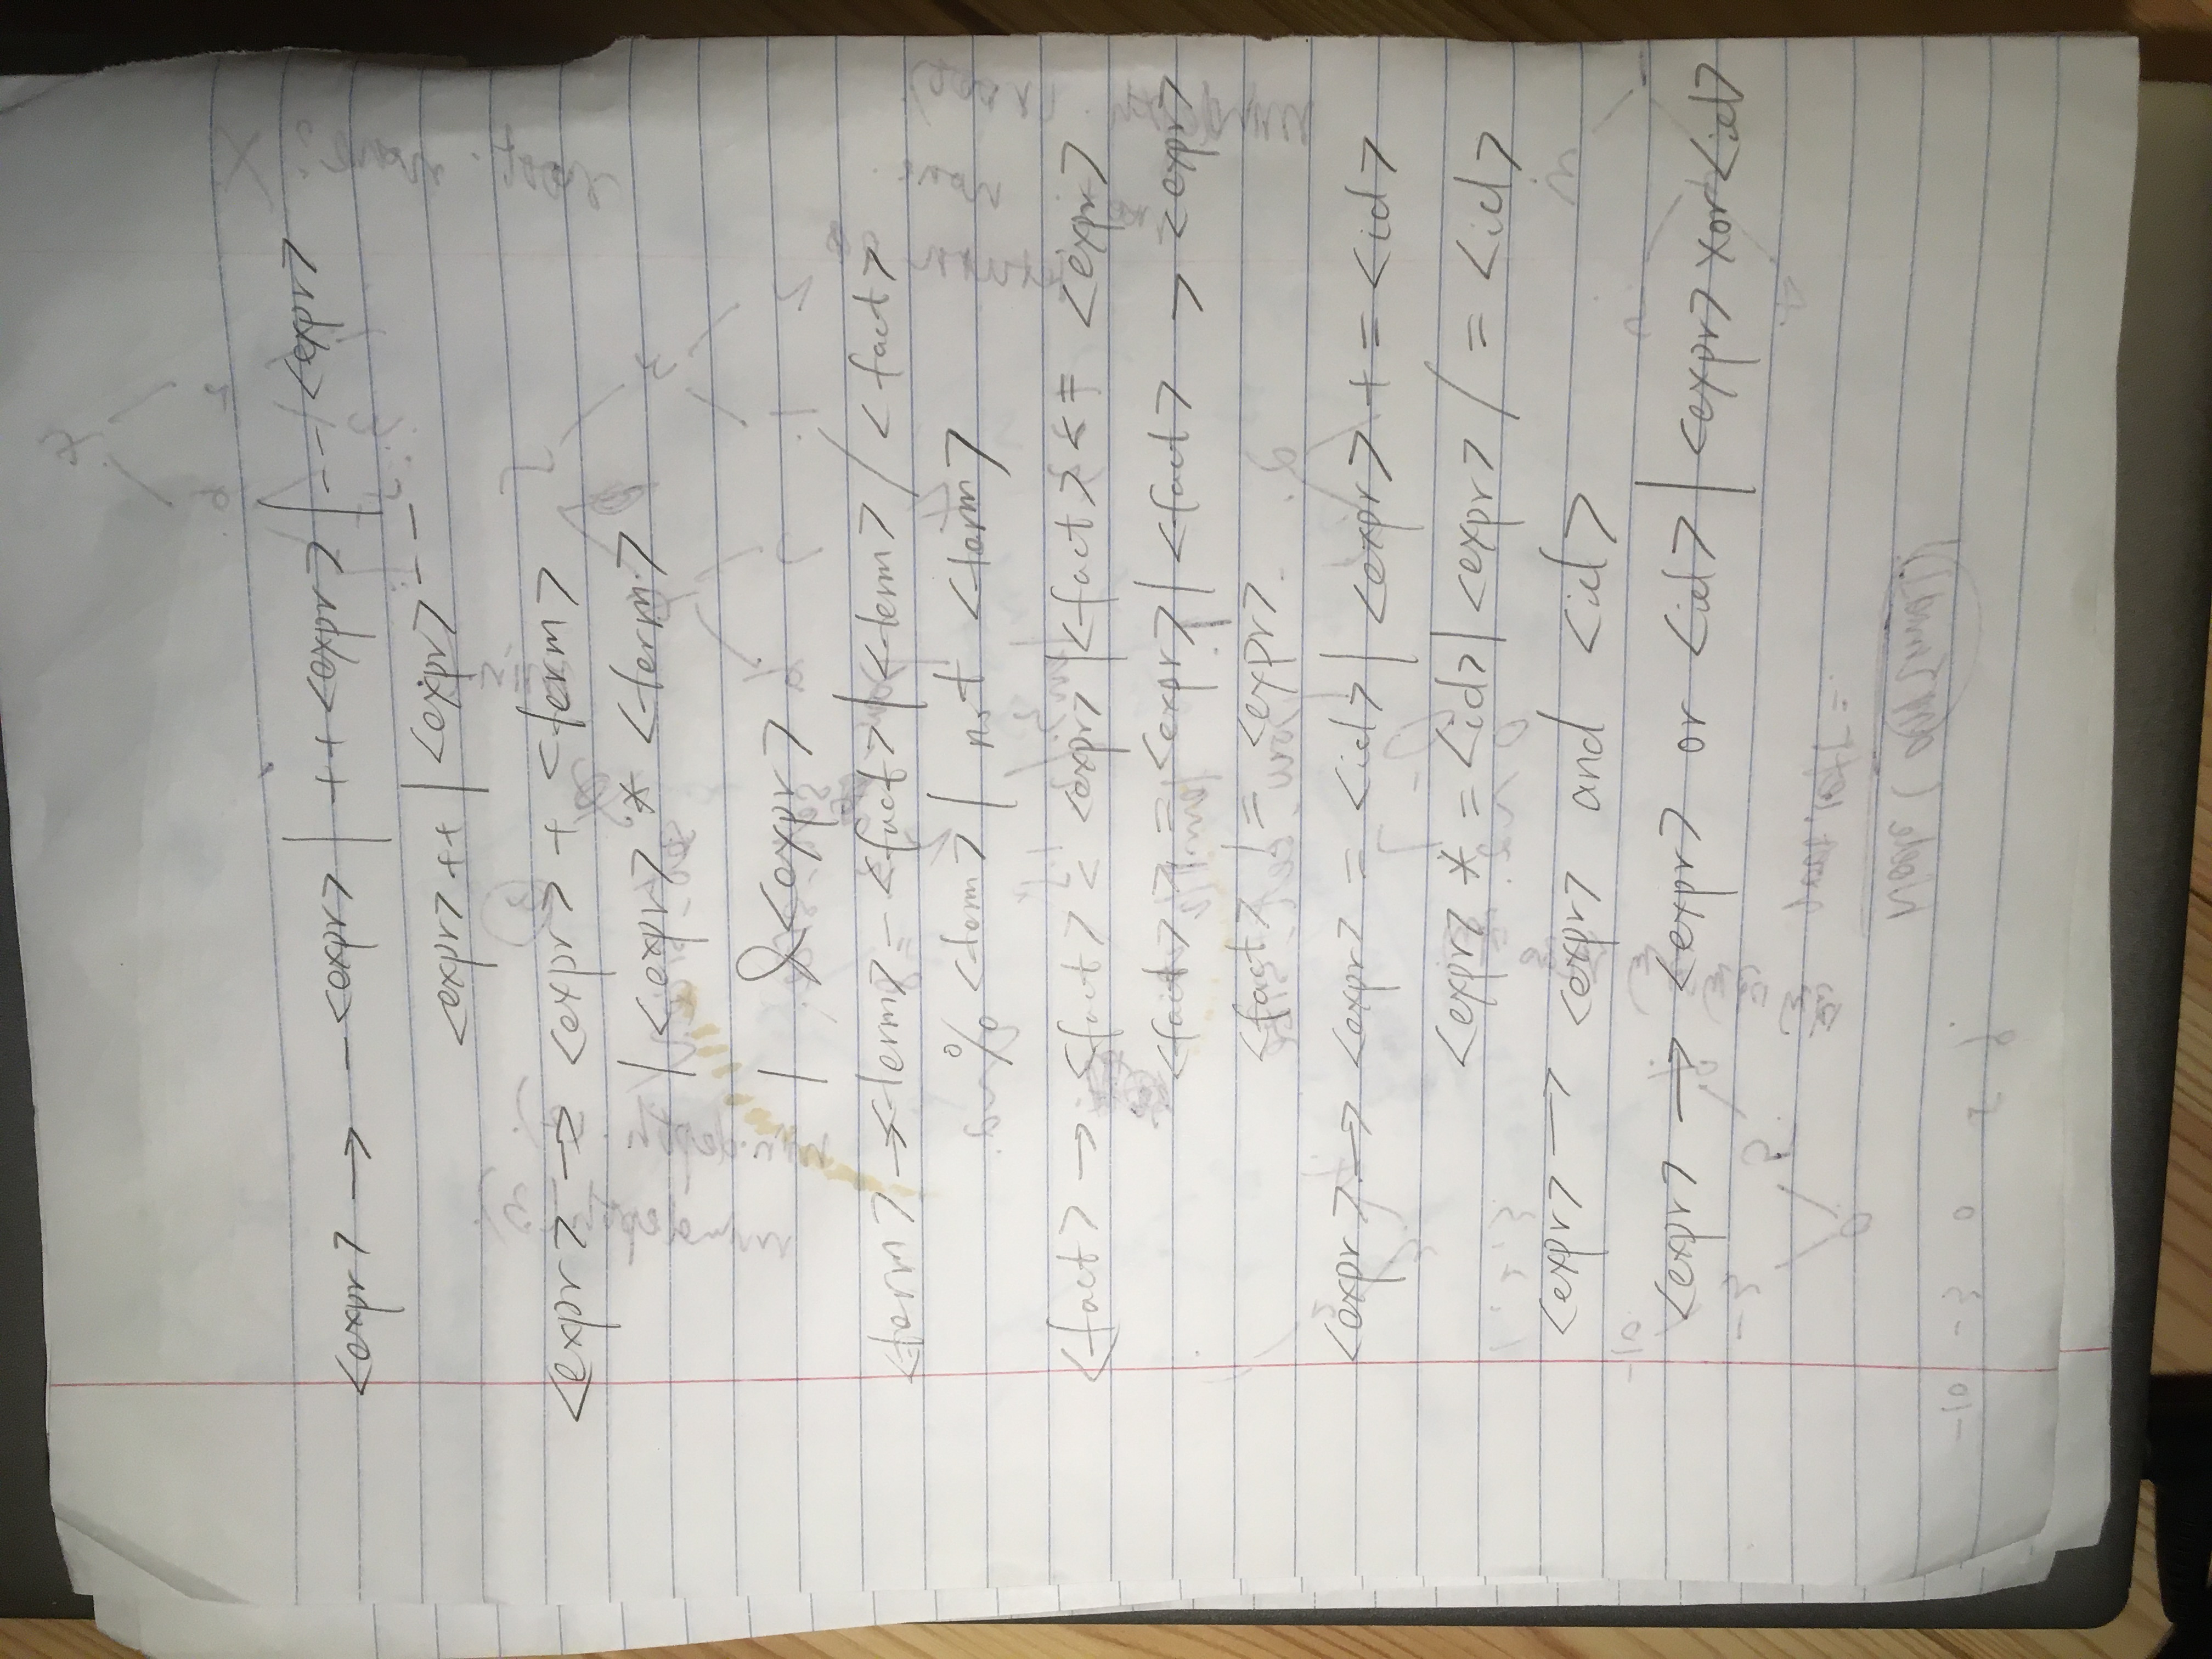 <expr> → -<expr> | ++<expr> | --<expr>
<expr>++ | <expr>--
<expr> → <expr> + <term>
| <expr> * <term>
| &<expr>
<term> → <term> - <fact> | <term> / <fact>
% <term> | not <term>
<fact> → <fact> < <expr> | <fact> <= <expr>
<fact> >= <expr> | <fact> > <expr>
<fact> != <expr>
<expr> → <expr> = <id> | <expr> += <id>
<expr> *= <id> | <expr> /= <id>
<expr> → <expr> and <id>
<expr> → <expr> or <id> | <expr> xor <id>